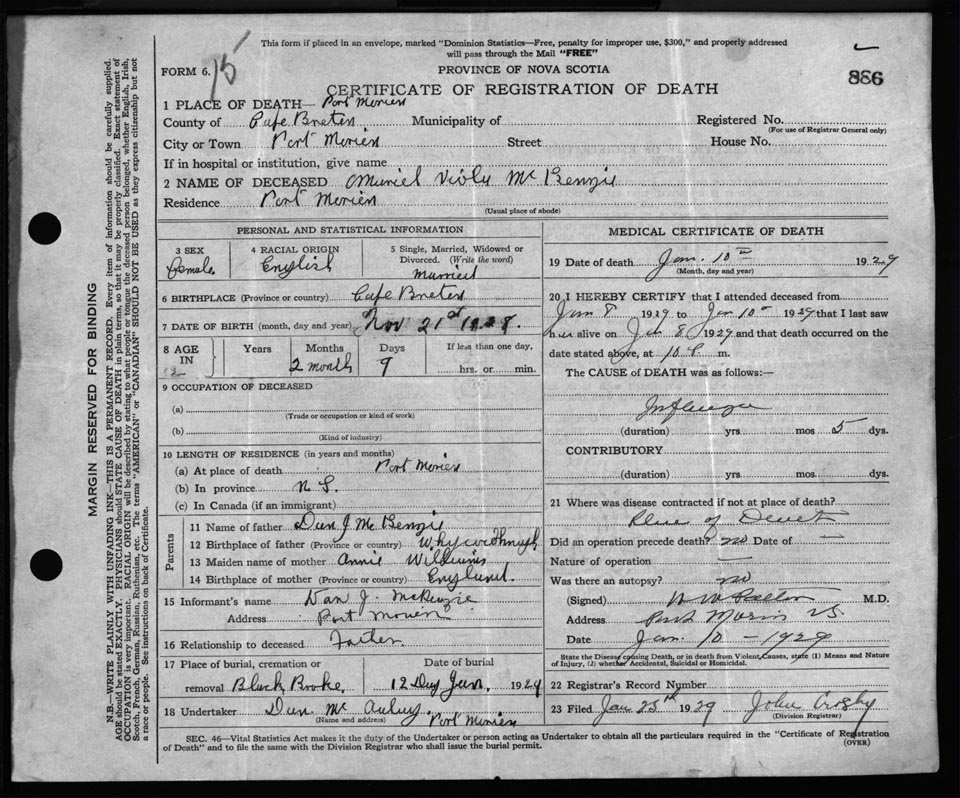 This form if placed in an envelope, marked "Dominion Statistics—Free, penalty for improper use, $300," and properly addressed
will pass through the Mail "FREE"
FORM 6. 75
PROVINCE OF NOVA SCOTIA
886
CERTIFICATE OF REGISTRATION OF DEATH
1 PLACE OF DEATH— Port Morien
County of Cape Breton Municipality of Registered No.
(For use of Registrar General only)
City or Town Port Morien Street House No.
If in hospital or institution, give name
2 NAME OF DECEASED Muriel Viola Mc Kenzie
Residence Port Morien
(Usual place of abode)
PERSONAL AND STATISTICAL INFORMATION
3 SEX
female
4 RACIAL ORIGIN
English
5 Single, Married, Widowed or
Divorced. (Write the word)
Married
6 BIRTHPLACE (Province or country) Cape Breton
7 DATE OF BIRTH (month, day and year) Nov 21st 1928.
8 AGE IN
Years
Months
2 month
Days
9
If less than one day,
hrs. or min.
9 OCCUPATION OF DECEASED
(a)
(Trade or occupation or kind of work)
(b)
(Kind of industry)
10 LENGTH OF RESIDENCE (in years and months)
(a) At place of death Port Morien
(b) In province N S.
(c) In Canada (if an immigrant)
Parents
11 Name of father Dan J Mc Kenzie
12 Birthplace of father (Province or country) Whycocomagh
13 Maiden name of mother Annie Williams
14 Birthplace of mother (Province or country) England.
15 Informant's name Dan J. McKenzie
Address Port Morien
16 Relationship to deceased Father
17 Place of burial, cremation or
removal Black Broke.
Date of burial
12 Day Jan. 1929
18 Undertaker Dan Mc Auley Port Morien
(Name and address)
MEDICAL CERTIFICATE OF DEATH
19 Date of death Jan. 10th 1929
(Month, day and year)
20 I HEREBY CERTIFY that I attended deceased from
Jan 8 1929 to Jan 10th 1929 that I last saw
her alive on Jan 8 1929 and that death occurred on the
date stated above, at 10 P. m.
The CAUSE of DEATH was as follows:—
Influenza
(duration) yrs mos 5 dys.
CONTRIBUTORY
(duration) yrs. mos dys.
21 Where was disease contracted if not at place of death?
Place of Death
Did an operation precede death? no Date of —
Nature of operation —
Was there an autopsy? no
(Signed) M.D.
Address Port Morien NS.
Date Jan. 10 - 1929
State the Disease causing Death, or in death from Violent Causes, state (1) Means and Nature
of Injury, (2) whether Accidental, Suicidal or Homicidal.
22 Registrar's Record Number
23 Filed Jan 25th 1929 John Crosby
(Division Registrar)
SEC. 46—Vital Statistics Act makes it the duty of the Undertaker or person acting as Undertaker to obtain all the particulars required in the "Certificate of Registration
of Death" and to file the same with the Division Registrar who shall issue the burial permit.
(OVER)
MARGIN RESERVED FOR BINDING
N.B—WRITE PLAINLY WITH UNFADING INK—THIS IS A PERMANENT RECORD. Every item of information should be carefully supplied.
AGE should be stated EXACTLY. PHYSICIANS should STATE CAUSE OF DEATH in plain terms, so that it may be properly classified. Exact statement of
OCCUPATION is very important. RACIAL ORIGIN will be described by stating to what people or tongue the deceased person belonged, whether English, Irish,
Scotch, French, German, Russian, Ruthenian, etc. The terms "AMERICAN" or "CANADIAN" SHOULD NOT BE USED as they express citizenship but not
a race or people. See instructions on back of Certificate.